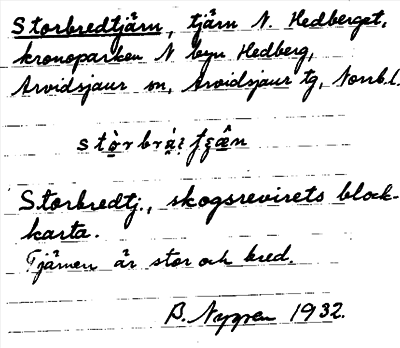 Storbredtjärn, tjärn N. Hedberget,
kronoparken N byn Hedberg,
Arvidsjaur sn, Arvidsjaur tg, Norrb.l.
Storbredtj., skogsrevirets block-
karta.
Tjärnen är stor och bred.
B. Nygren 1932.